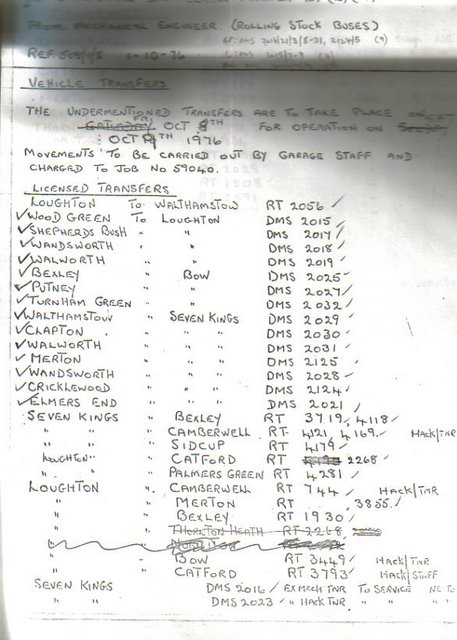 FROM MECHANICAL ENGINEER. (ROLLING STOCK BUSES)
REF 1-10-76
VEHICLE TRANSFERS
THE UNDERMENTIONED TRANSFERS ARE TO TAKE PLACE ON
SATURDAY FRI OCT 8TH FOR OPERATION ON
OCT 9TH 1976
MOVEMENTS TO BE CARRIED OUT BY GARAGE STAFF AND
CHARGED TO JOB NO 59040.
LICENSED TRANSFERS
LOUGHTON TO WALTHAMSTOW RT 2056 ✓
✓ WOOD GREEN TO LOUGHTON DMS 2015 ✓
✓ SHEPHERDS BUSH " " DMS 2017 ✓
✓ WANDSWORTH " " DMS 2018 ✓
✓ WALWORTH " " DMS 2019 ✓
✓ BEXLEY " BOW DMS 2025 ✓
✓ PUTNEY " " DMS 2027 ✓
✓ TURNHAM GREEN " " DMS 2032 ✓
✓ WALTHAMSTOW " SEVEN KINGS DMS 2029 ✓
✓ CLAPTON " " " DMS 2030 ✓
✓ WALWORTH " " " DMS 2031 ✓
✓ MERTON " " " DMS 2125 ✓
✓ WANDSWORTH " " " DMS 2028 ✓
✓ CRICKLEWOOD " " " DMS 2124 ✓
✓ ELMERS END " " " DMS 2021 ✓
SEVEN KINGS " BEXLEY RT 3719, 4118 ✓
" " " CAMBERWELL RT 4121, 4169 ✓ HACK/TNR
" " " SIDCUP RT 4179 ✓
LOUGHTON " CATFORD RT 2268 ✓
" " PALMERS GREEN RT 4281 ✓
LOUGHTON " CAMBERWELL RT 744 ✓ HACK/TNR
" " MERTON RT 3855 ✓
" " BEXLEY RT 1930 ✓
" " THORNTON HEATH RT 2268
" " BOW RT 3449 ✓ HACK/TNR
" " CATFORD RT 3793 ✓ HACK/STAFF
SEVEN KINGS DMS 2016 ✓ EX MECH TNR TO SERVICE
" " DMS 2023 ✓ " HACK TNR " "